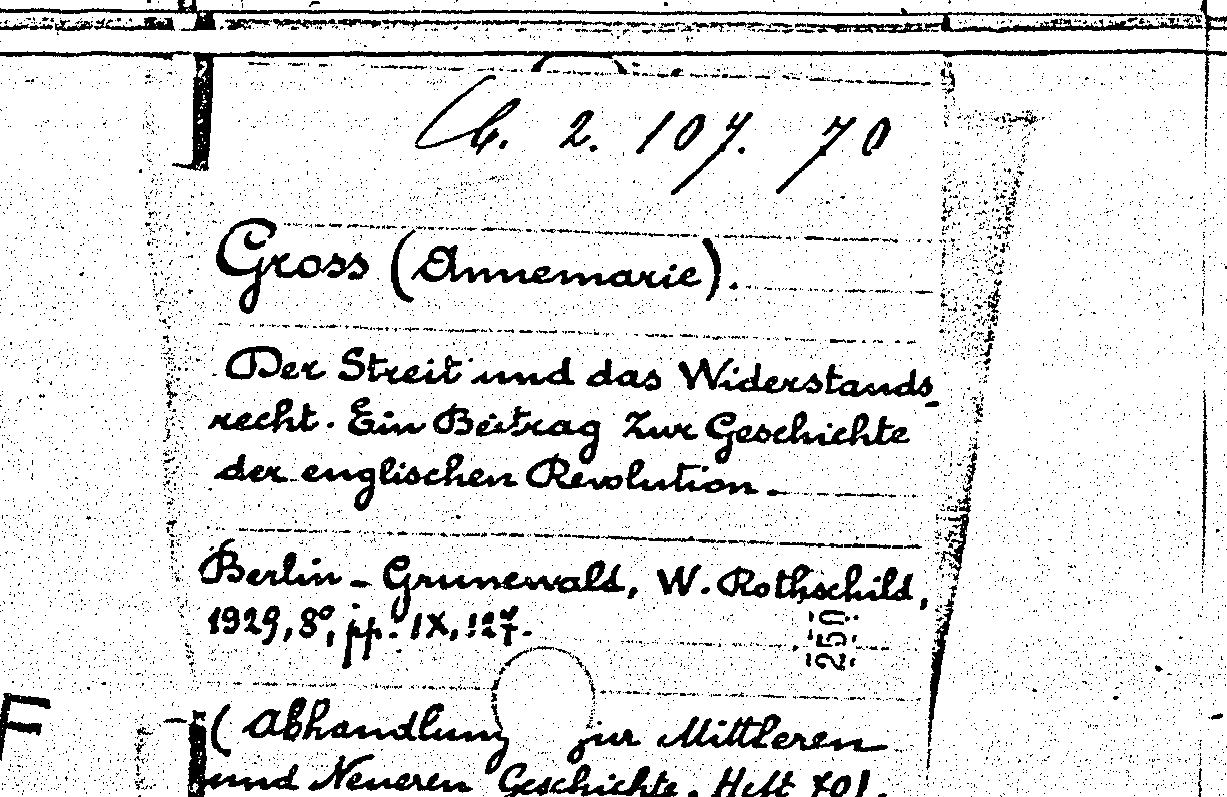 C. 2. 107. 70
Gross (Annemarie).
Der Streit und das Widerstands-
recht. Ein Beitrag zur Geschichte
der englischen Revolution.
Berlin-Grunewald, W. Rothschild,
1929, 8°, pp. IX, 127.
250
F
(Abhandlung zur Mittleren
und Neueren Geschichte. Heft